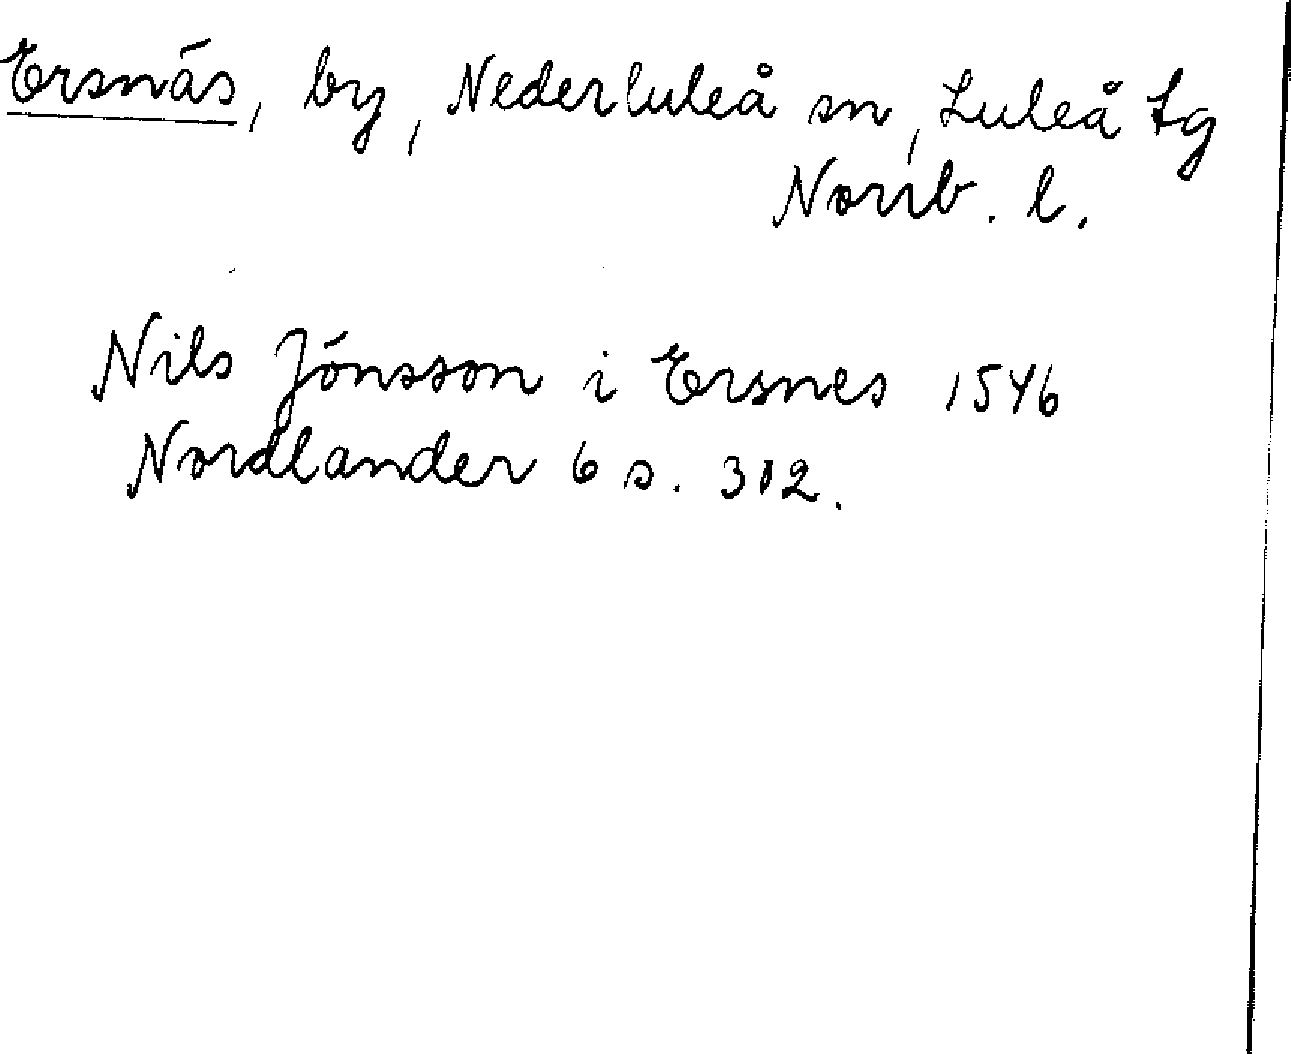 Ersnäs, by, Nederluleå sn, Luleå tg
Norrb. l.
Nils Jönsson i Ersnes 1546
Nordlander 6 s. 312.